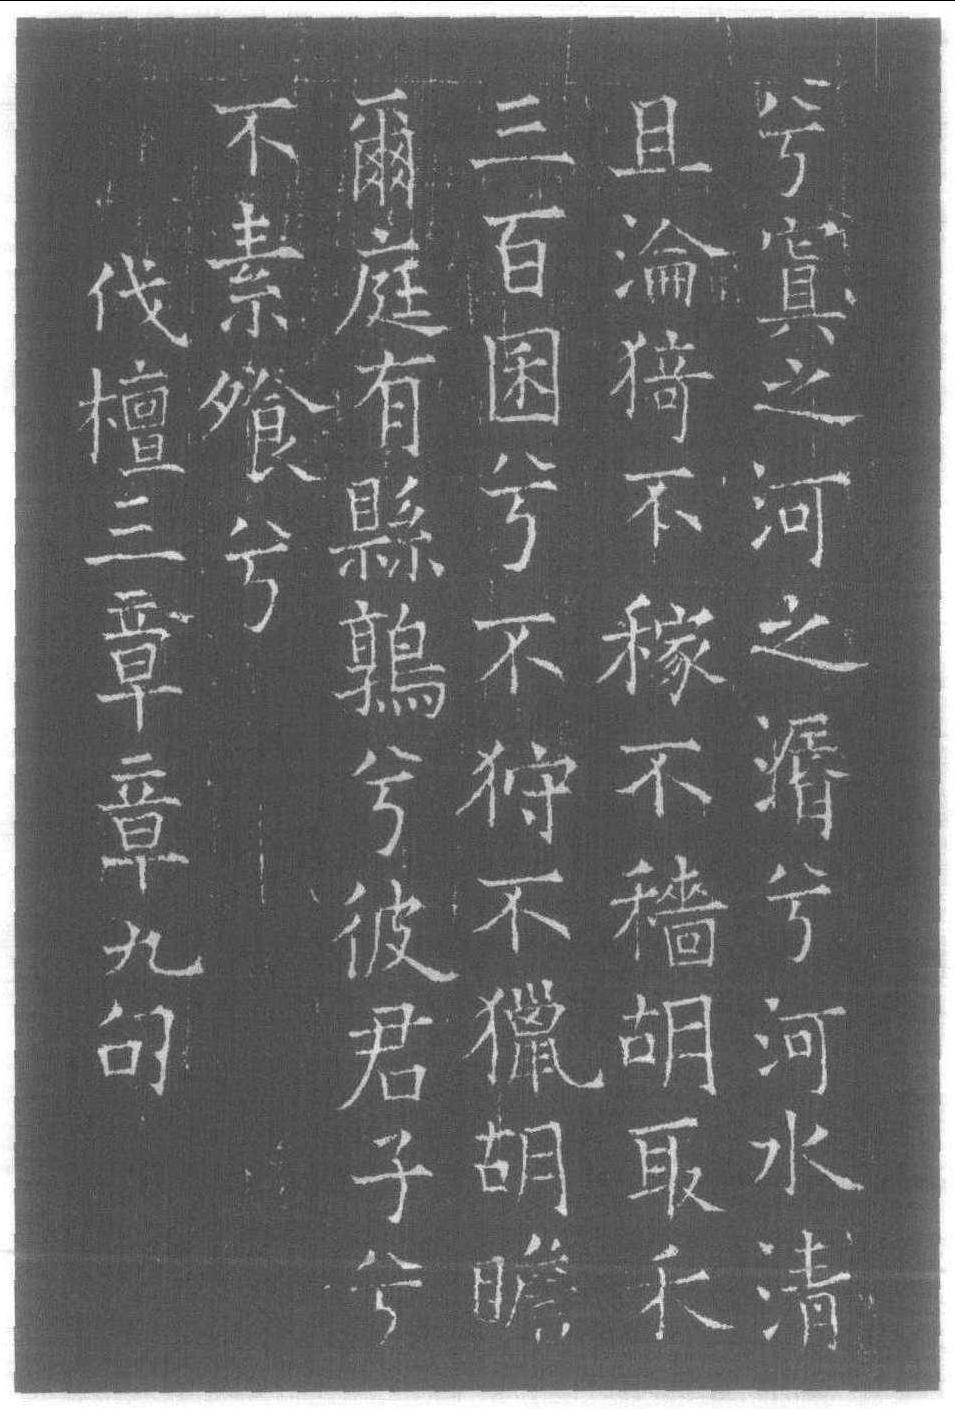 兮寘之河之漘兮河水清
且淪猗不稼不穡胡取禾
三百囷兮不狩不獵胡瞻
爾庭有縣鶉兮彼君子兮
不素飧兮
伐檀三章章九句